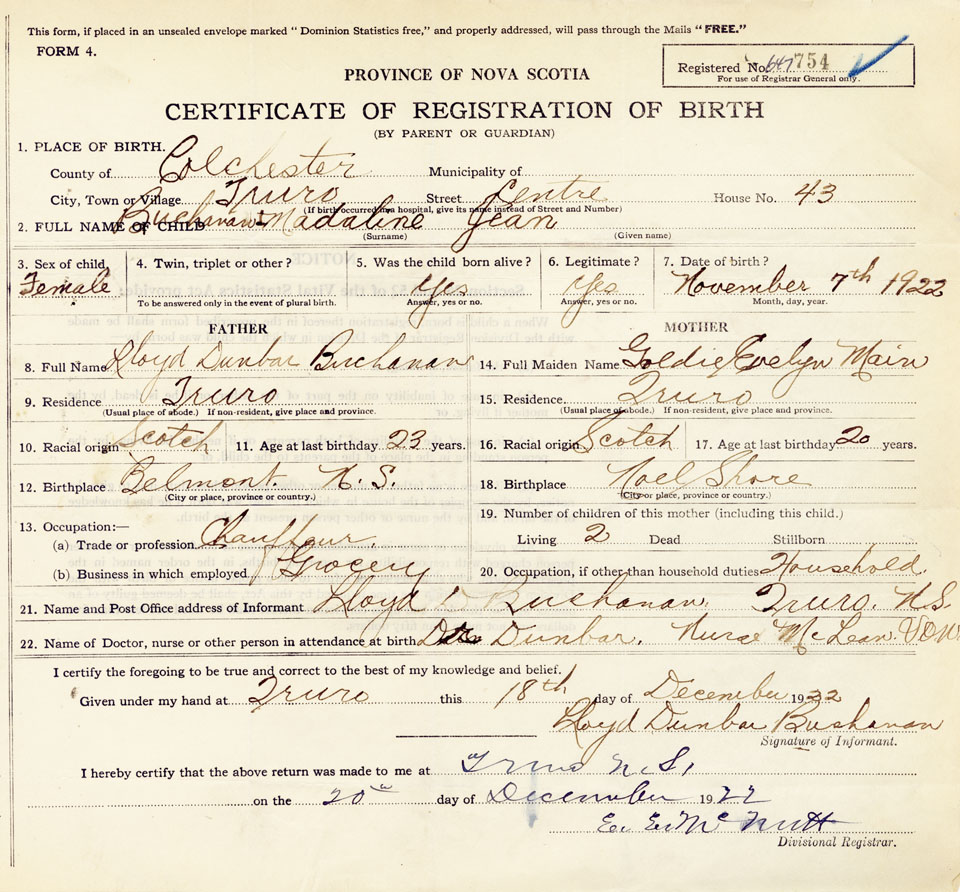 This form, if placed in an unsealed envelope marked "Dominion Statistics free," and properly addressed, will pass through the Mails "FREE."
FORM 4.
Registered No. 754
For use of Registrar General only.
PROVINCE OF NOVA SCOTIA
CERTIFICATE OF REGISTRATION OF BIRTH
(BY PARENT OR GUARDIAN)
1. PLACE OF BIRTH.
County of Colchester Municipality of
City, Town or Village Truro Street Centre House No. 43
(If birth occurred in a hospital, give its name instead of Street and Number)
2. FULL NAME OF CHILD Buchanan Madaline Jean
(Surname) (Given name)
3. Sex of child 4. Twin, triplet or other? 5. Was the child born alive? 6. Legitimate? 7. Date of birth?
Female Yes Yes November 7th 1922
To be answered only in the event of plural birth. Answer, yes or no. Answer, yes or no. Month, day, year.
FATHER MOTHER
8. Full Name Lloyd Dunbar Buchanan 14. Full Maiden Name Goldie Evelyn Main
9. Residence Truro 15. Residence. Truro
(Usual place of abode.) If non-resident, give place and province. (Usual place of abode.) If non-resident, give place and province.
10. Racial origin Scotch 11. Age at last birthday 23 years. 16. Racial origin Scotch 17. Age at last birthday 20 years.
12. Birthplace Belmont. N.S. 18. Birthplace Noel Shore
(City or place, province or country.) (City or place, province or country.)
13. Occupation:— 19. Number of children of this mother (including this child.)
(a) Trade or profession Chauffeur. Living 2 Dead Stillborn
(b) Business in which employed Grocery 20. Occupation, if other than household duties Household.
21. Name and Post Office address of Informant Lloyd D Buchanan. Truro. N.S.
22. Name of Doctor, nurse or other person in attendance at birth Dunbar. Nurse McLean. VON
I certify the foregoing to be true and correct to the best of my knowledge and belief.
Given under my hand at Truro this 18th day of December 1922
Lloyd Dunbar Buchanan
Signature of Informant.
I hereby certify that the above return was made to me at Truro N.S.
on the 20th day of December 1922
E. E. McNutt
Divisional Registrar.